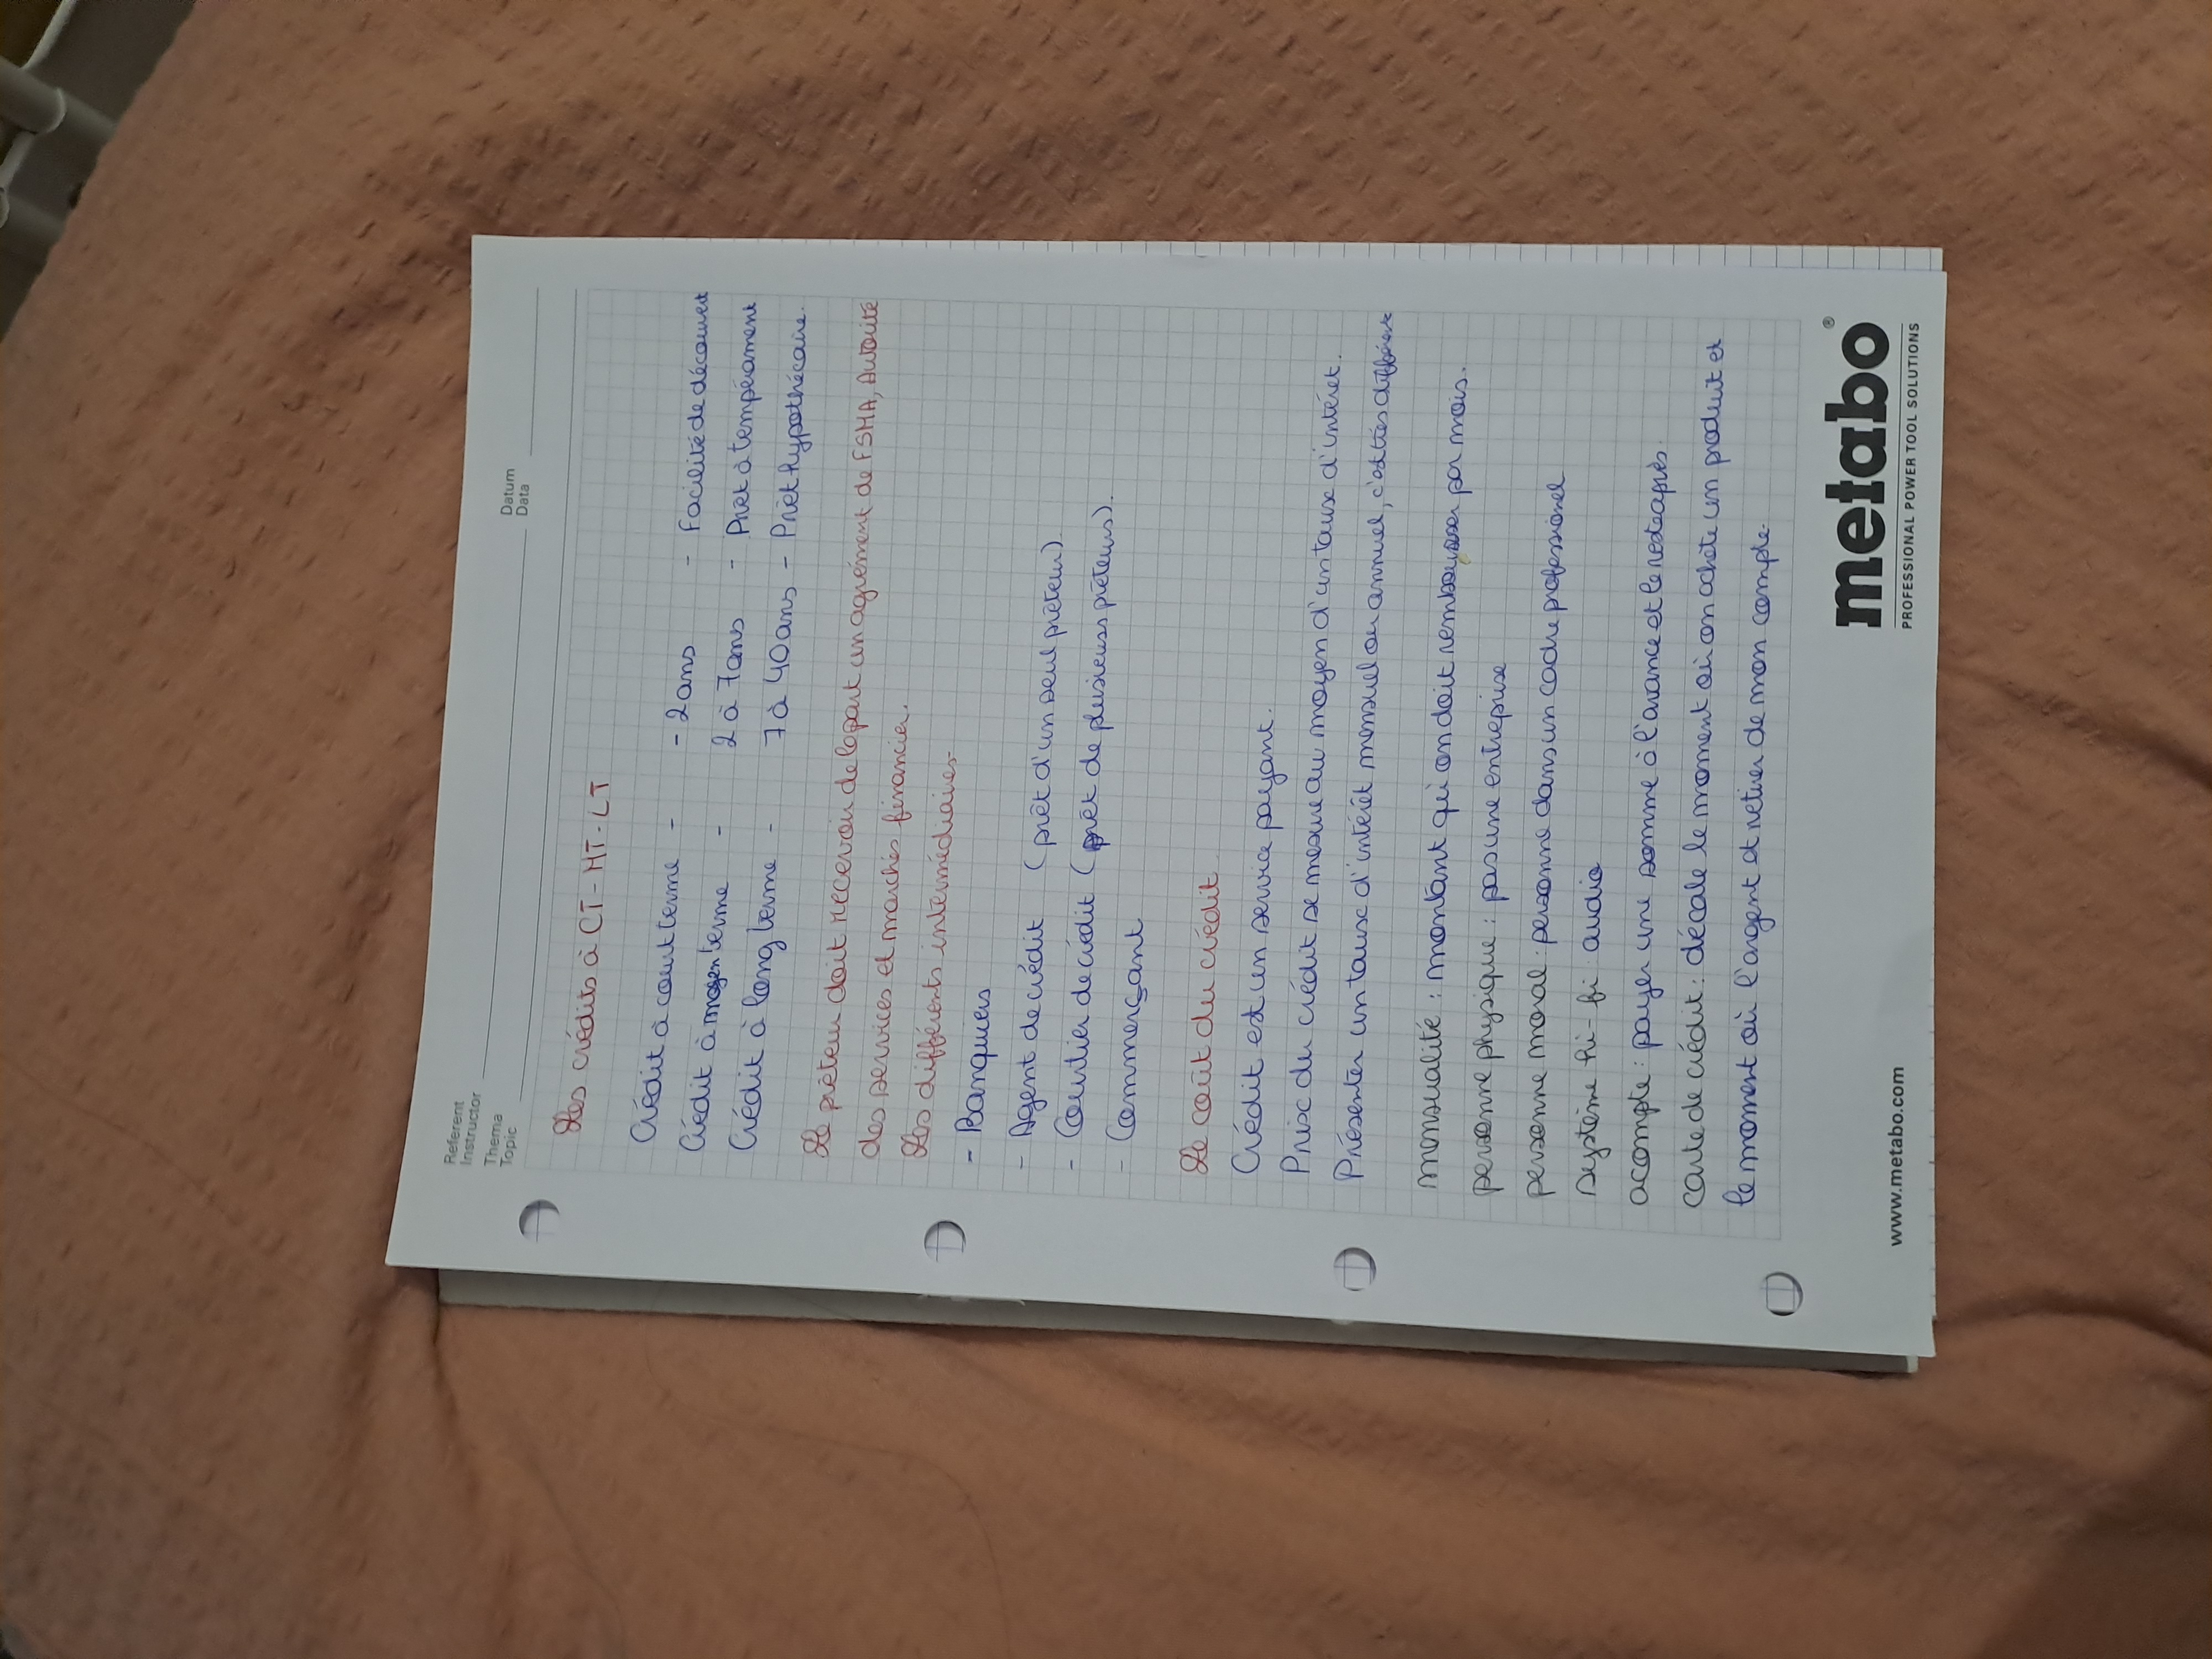 Referent
Instructor
Thema
Topic
Datum
Data
Les crédits à CT - MT - LT
Crédit à court terme - - 2 ans - Facilité de découvert
Crédit à moyen terme - 2 à 7 ans - Prêt à tempérament
Crédit à long terme - 7 à 40 ans - Prêt hypothécaire.
Le prêteur doit recevoir de la part un agrément de FSMA, Autorité
des services et marchés financier.
Les différents intermédiaires
- Banquiers
- Agent de crédit (prêt d'un seul prêteur)
- Courtier de crédit (prêt de plusieurs prêteurs).
- Commerçant
Le coût du crédit
Crédit est un service payant.
Prix du crédit se mesure au moyen d'un taux d'intéret.
Présenter un taux d'intérêt mensuel ou annuel, c'est très différent
mensualité : montant qui on doit rembourser par mois.
personne physique : pas une entreprise
personne moral : personne dans un cadre professionel
système hi-fi : audio
acompte : payer une somme à l'avance et le reste après.
carte de crédit : décale le moment où on achète un produit et
le moment où l'argent et retirer de mon compte.
www.metabo.com
metabo®
PROFESSIONAL POWER TOOL SOLUTIONS